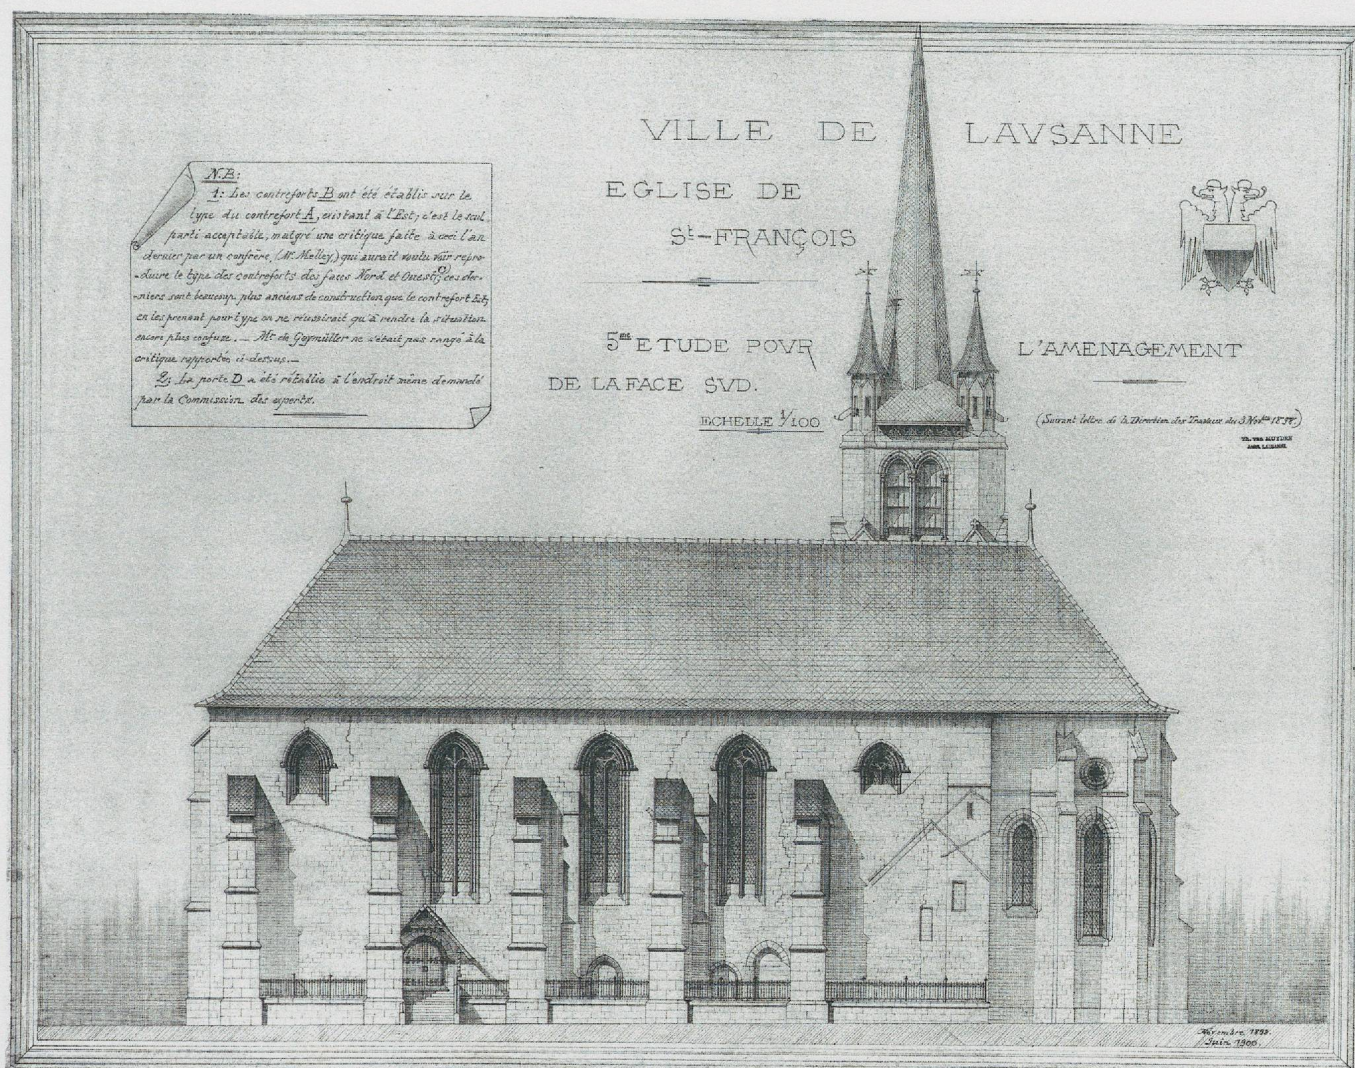 VILLE DE LAVSANNE
EGLISE DE
St-FRANÇOIS
5me ETUDE POVR L'AMENAGEMENT
DE LA FACE SVD.
ECHELLE 1/100
(Suivant lettre de la Direction des Travaux du 3 Nov.bre 1898.)
N.B:
1: Les contreforts B ont été établis sur le
type du contrefort A, existant à l'Est; c'est le seul
parti acceptable, malgré une critique faite à ceci l'an
dernier par un confrère, (Mr. Melley,) qui aurait voulu voir repro-
-duire le type des contreforts des faces Nord et Ouest; ces der-
-niers sont beaucoup plus anciens de construction que le contrefort Est;
en les prenant pour type on ne réussirait qu'à rendre la situation
encore plus confuse. — Mr. de Geymüller ne s'était pas rangé à la
critique rapportée ci-dessus. —
2: La porte D a été rétablie à l'endroit même demandé
par la Commission des experts.
Novembre 1898.
Juin 1900.